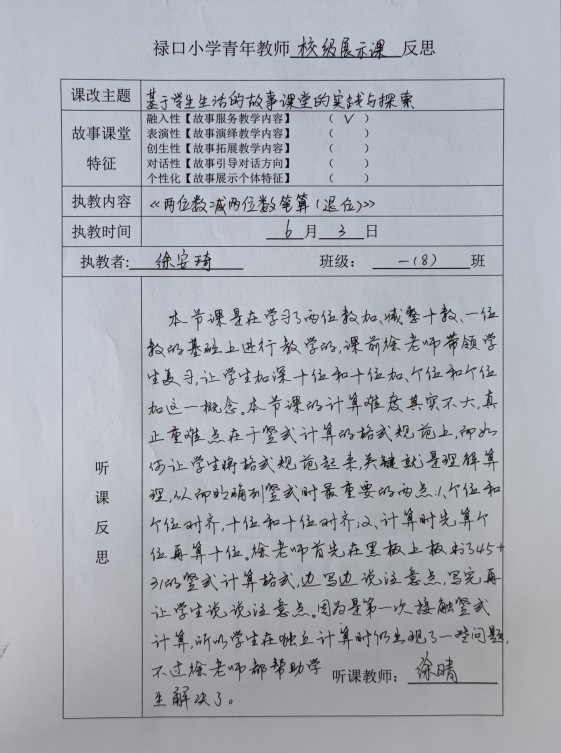 禄口小学青年教师 校级展示课 反思
课改主题 基于学生生活的故事课堂的实践与探索
故事课堂特征
融入性【故事服务教学内容】 （ √ ）
表演性【故事演绎教学内容】 （ ）
创生性【故事拓展教学内容】 （ ）
对话性【故事引导对话方向】 （ ）
个性化【故事展示个体特征】 （ ）
执教内容 《两位数减两位数笔算（退位）》
执教时间 6 月 3 日
执教者: 徐安琦 班级： 一（8） 班
听课反思
本节课是在学习了两位数加、减整十数、一位
数的基础上进行教学的,课前徐老师带领学
生复习,让学生加深十位和十位加、个位和个位
加这一概念。本节课的计算难度其实不大,真
正重难点在于竖式计算的格式规范上,而如
何让学生将格式规范起来,关键就是理解算
理,从而明确列竖式时最重要的两点:1、个位和
个位对齐,十位和十位对齐;2、计算时先算个
位再算十位。徐老师首先在黑板上板书了45+
31的竖式计算格式,边写边说注意点,写完再
让学生说说注意点。因为是第一次接触竖式
计算,所以学生在独立计算时仍出现了一些问题,
不过徐老师都帮助学
生解决了。
听课教师： 徐晴